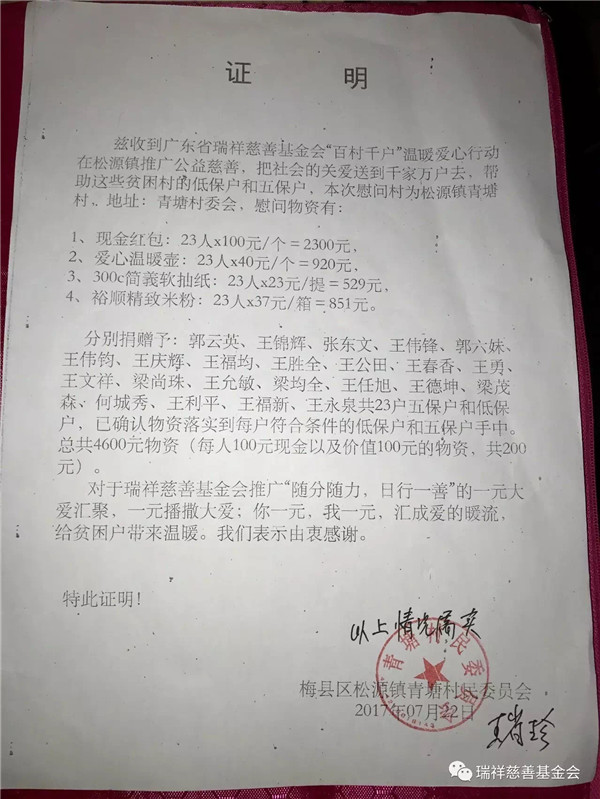 证 明
兹收到广东省瑞祥慈善基金会“百村千户”温暖爱心行动
在松源镇推广公益慈善，把社会的关爱送到千家万户去，帮
助这些贫困村的低保户和五保户，本次慰问村为松源镇青塘
村。地址：青塘村委会，慰问物资有：
1、现金红包：23人x100元/个=2300元，
2、爱心温暖壶：23人x40元/个=920元，
3、300c简義软抽纸：23人x23元/提=529元，
4、裕顺精致米粉：23人x37元/箱=851元。
分别捐赠予：郭云英、王锦辉、张东文、王伟锋、郭六妹、
王伟钧、王庆辉、王福均、王胜全、王公田、王春香、王勇、
王文祥、梁尚珠、王允敏、梁均全、王任旭、王德坤、梁茂
森、何城秀、王利平、王福新、王永泉共23户五保户和低保
户，已确认物资落实到每户符合条件的低保户和五保户手中。
总共4600元物资（每人100元现金以及价值100元的物资，共200
元）。
对于瑞祥慈善基金会推广“随分随力，日行一善”的一元大
爱汇聚，一元播撒大爱；你一元，我一元，汇成爱的暖流，
给贫困户带来温暖。我们表示由衷感谢。
特此证明！
以上情况属实
梅县区松源镇青塘村民委员会
2017年07月22日
瑞祥慈善基金会